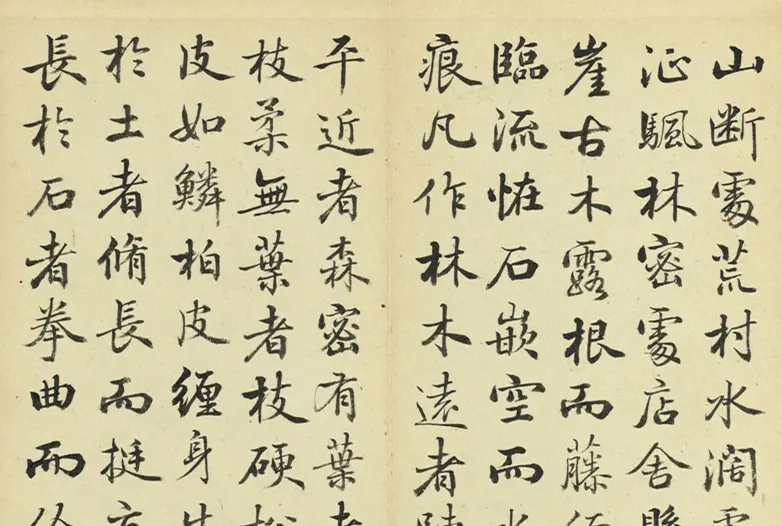 山断處荒村水濶
征颿林密處店舍
崖古木露根而藤
臨流恠石嵌空而
痕凡作林木遠者
平近者森密有葉
枝柔無葉者枝硬
皮如鱗柏皮纏身
於土者脩長而挺
長於石者拳曲而